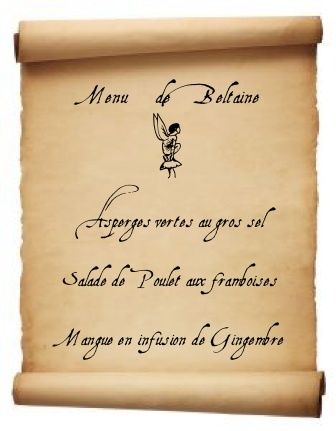 Menu de Beltaine
Asperges vertes au gros sel
Salade de Poulet aux framboises
Mangue en infusion de Gingembre